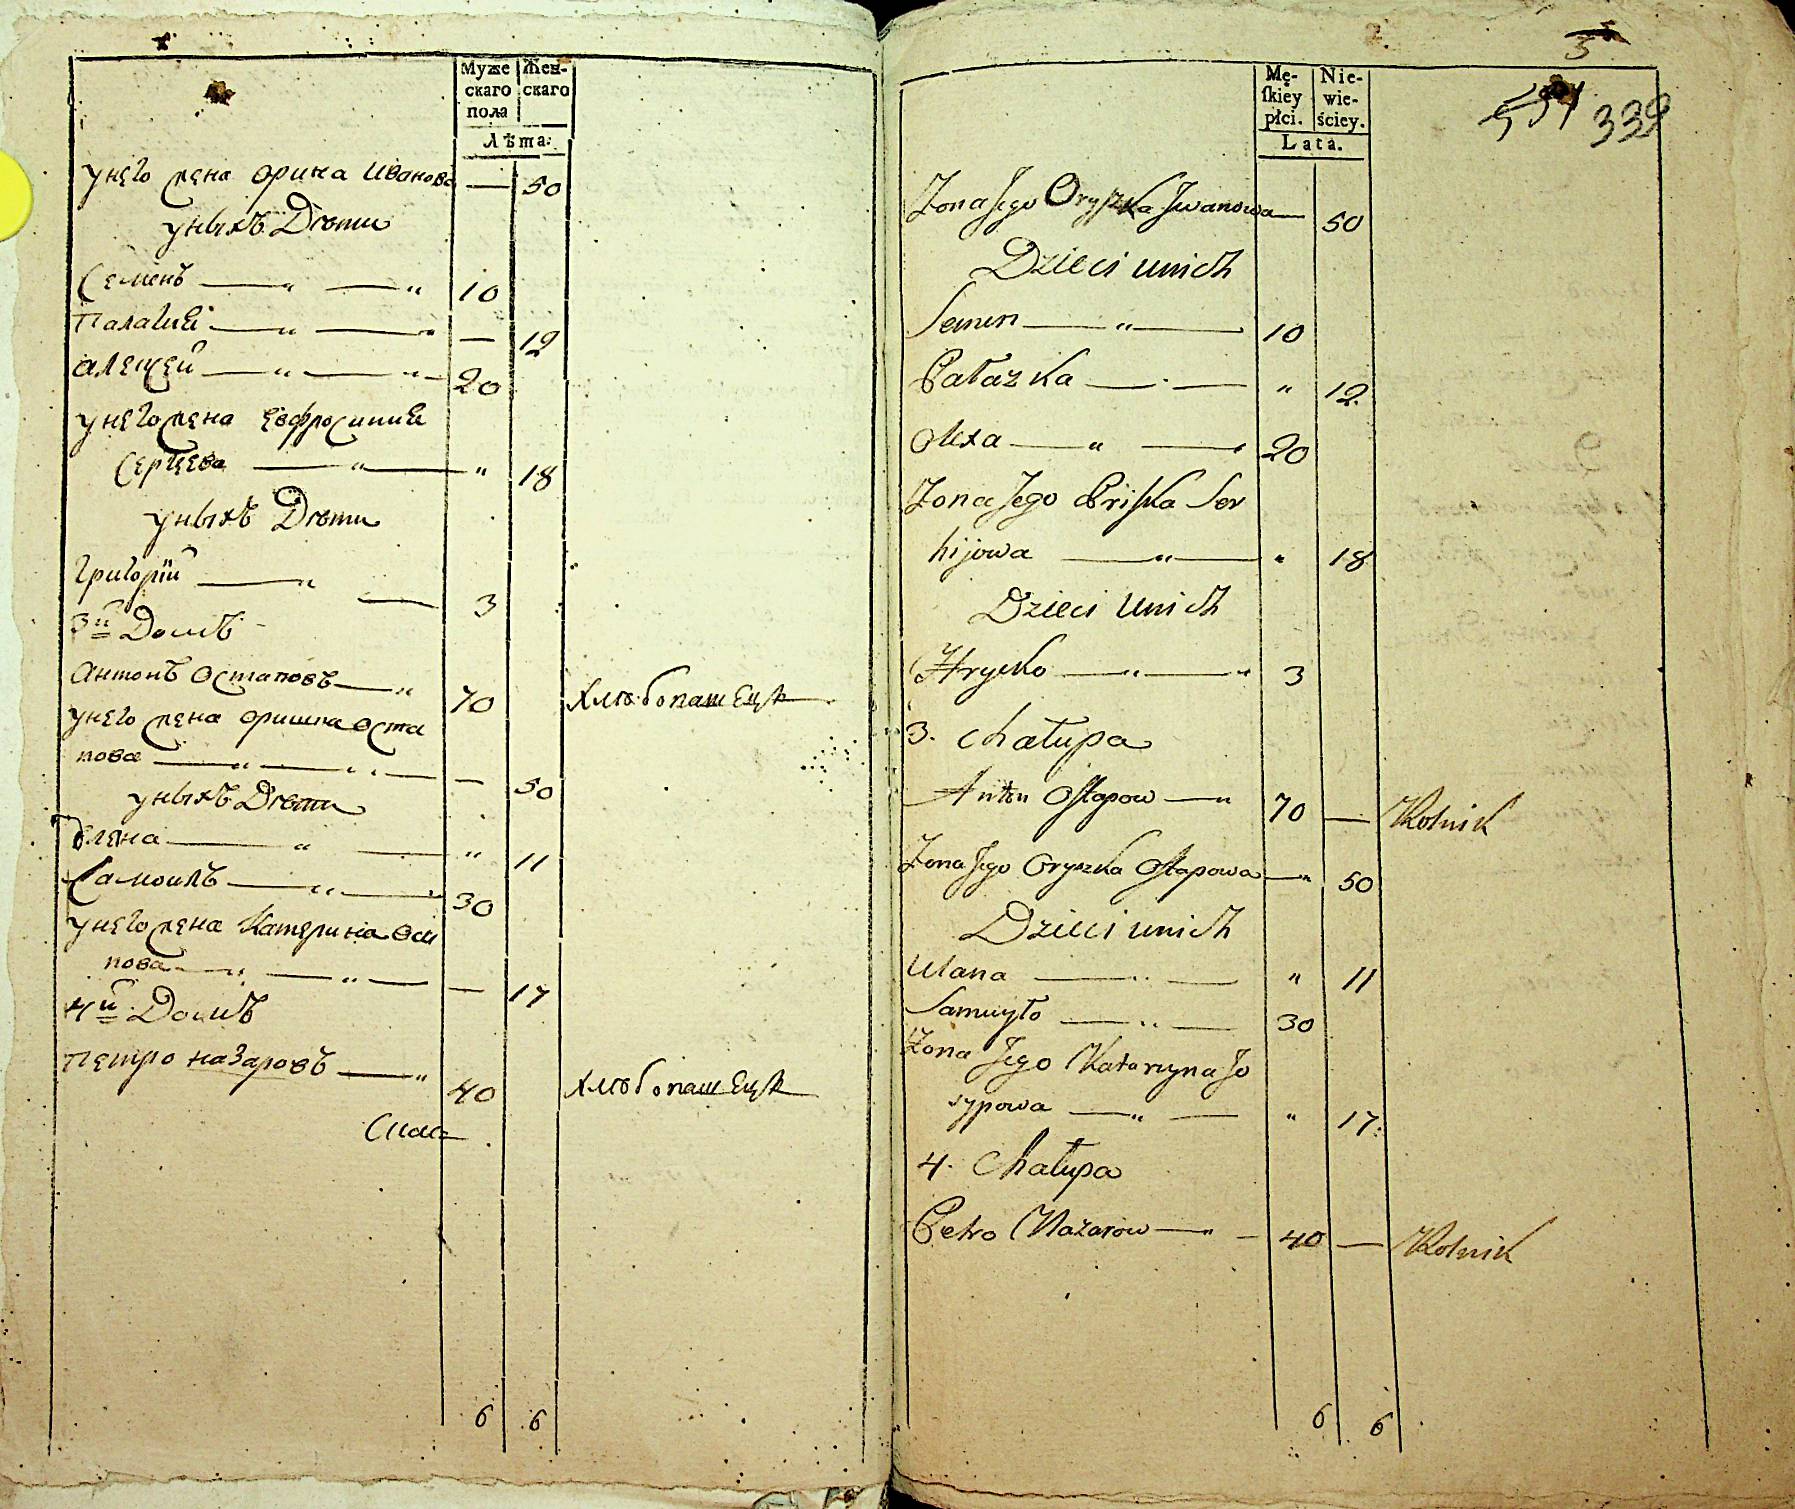 Муже
скаго
пола
Жен-
скаго
Лѣта:
у него жена орина Иванова — 50
у ныхъ Дѣти
Семенъ — „ — „ 10
Палагия — „ — „ — 12
алеѯей — „ — „ 20
у него жена Евфросиния
Сергѣева — „ — „ 18
у ныхъ Дѣти
Григорій — „ — 3
3й Домъ
антонъ Остаповъ — „ 70 Хлѣбопашецъ
у него жена оришка Оста
пова — „ — „ — — 50
у ныхъ Дѣти
Елена — „ — „ 11
Самоилъ — „ — 30
у него жена Катерина Оси
пова — „ — „ — — 17
4й Домъ
Петро назаровъ — „ 40 Хлѣбопашецъ
6 6
5
Mę-
ſkiey
płci.
Nie-
wie-
ściey.
Lata.
339
Zona Jego Oryszka Jwanowa — 50
Dzieci unich
Semen — „ — 10
Pałazka — „ — „ 12.
Olexa — „ — 20
Zona Jego Priſka Ser
hijowa — „ — „ 18
Dzieci unich
Hrycko — „ — „ 3
3. Chałupa
Anton Oſtapow — „ 70 — Rolnik
Zona Jego Oryszka Oſtapowa — „ 50
Dzieci unich
Ulana — „ — „ 11
Samuyło — „ — 30
Zona Jego Katarzyna Jo
sypowa — „ — „ 17:
4. Chałupa
Petro Nazarow — „ — 40 — Rolnik
6 6